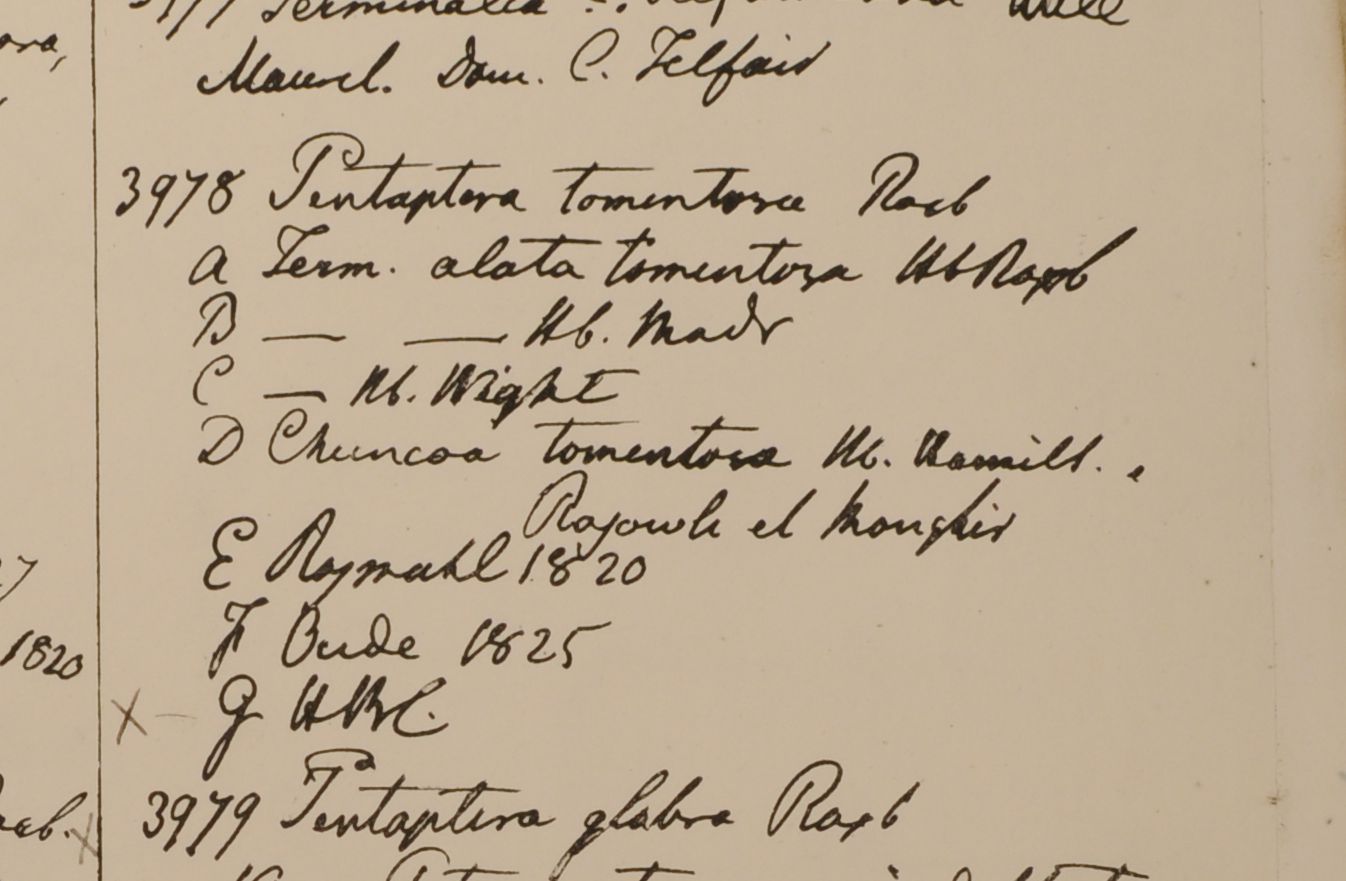 ora,
3977 Terminalia
Maurit. Dom. C. Telfair
3978 Pentaptera tomentosa Roxb
A Term. alata tomentosa Hb Roxb
B — — Hb. Madr
C — Hb. Wight
D Chuncoa tomentosa Hb. Hamilt.
et Monghir
E Rajmahl 1820
F Oude 1825
1820
X — G HBC.
3979 Pentaptera glabra Roxb